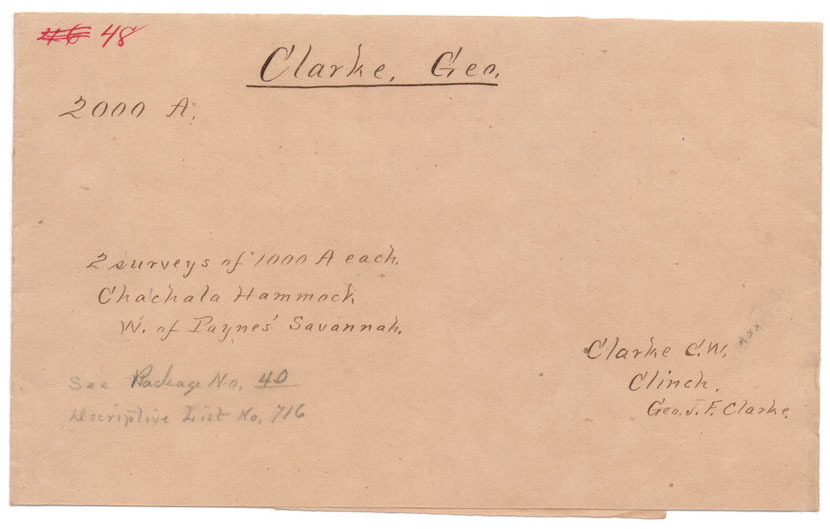 #6 48
Clarke, Geo.
2000 A.
2 surveys of 1000 A each.
Chachala Hammock
W. of Paynes' Savannah.
Clarke C.W.
Clinch.
Geo. J. F. Clarke.
See Package No. 40
Descriptive List No. 716